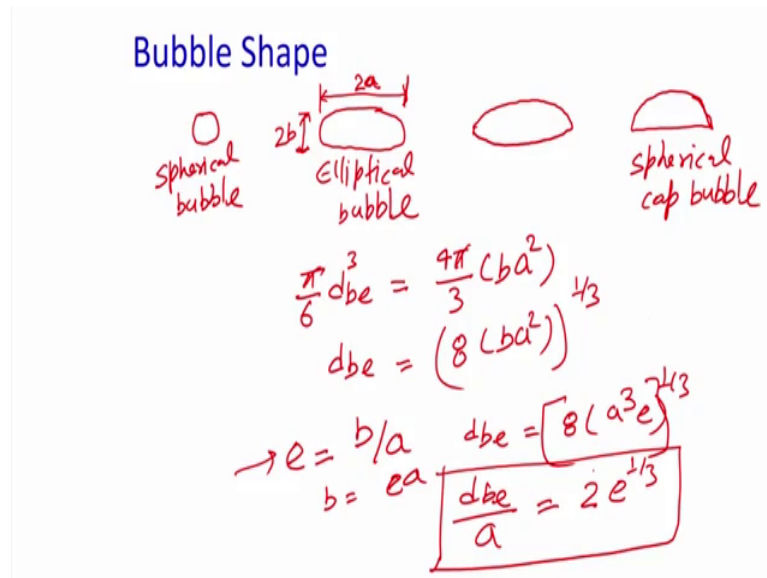 Bubble Shape
2a
2b
spherical bubble
Elliptical bubble
spherical cap bubble
π/6 dbe³ = 4π/3 (ba²)
dbe = (8(ba²))^1/3
→ e = b/a
dbe = [8(a³e)]^1/3
b = ea
dbe/a = 2e^1/3